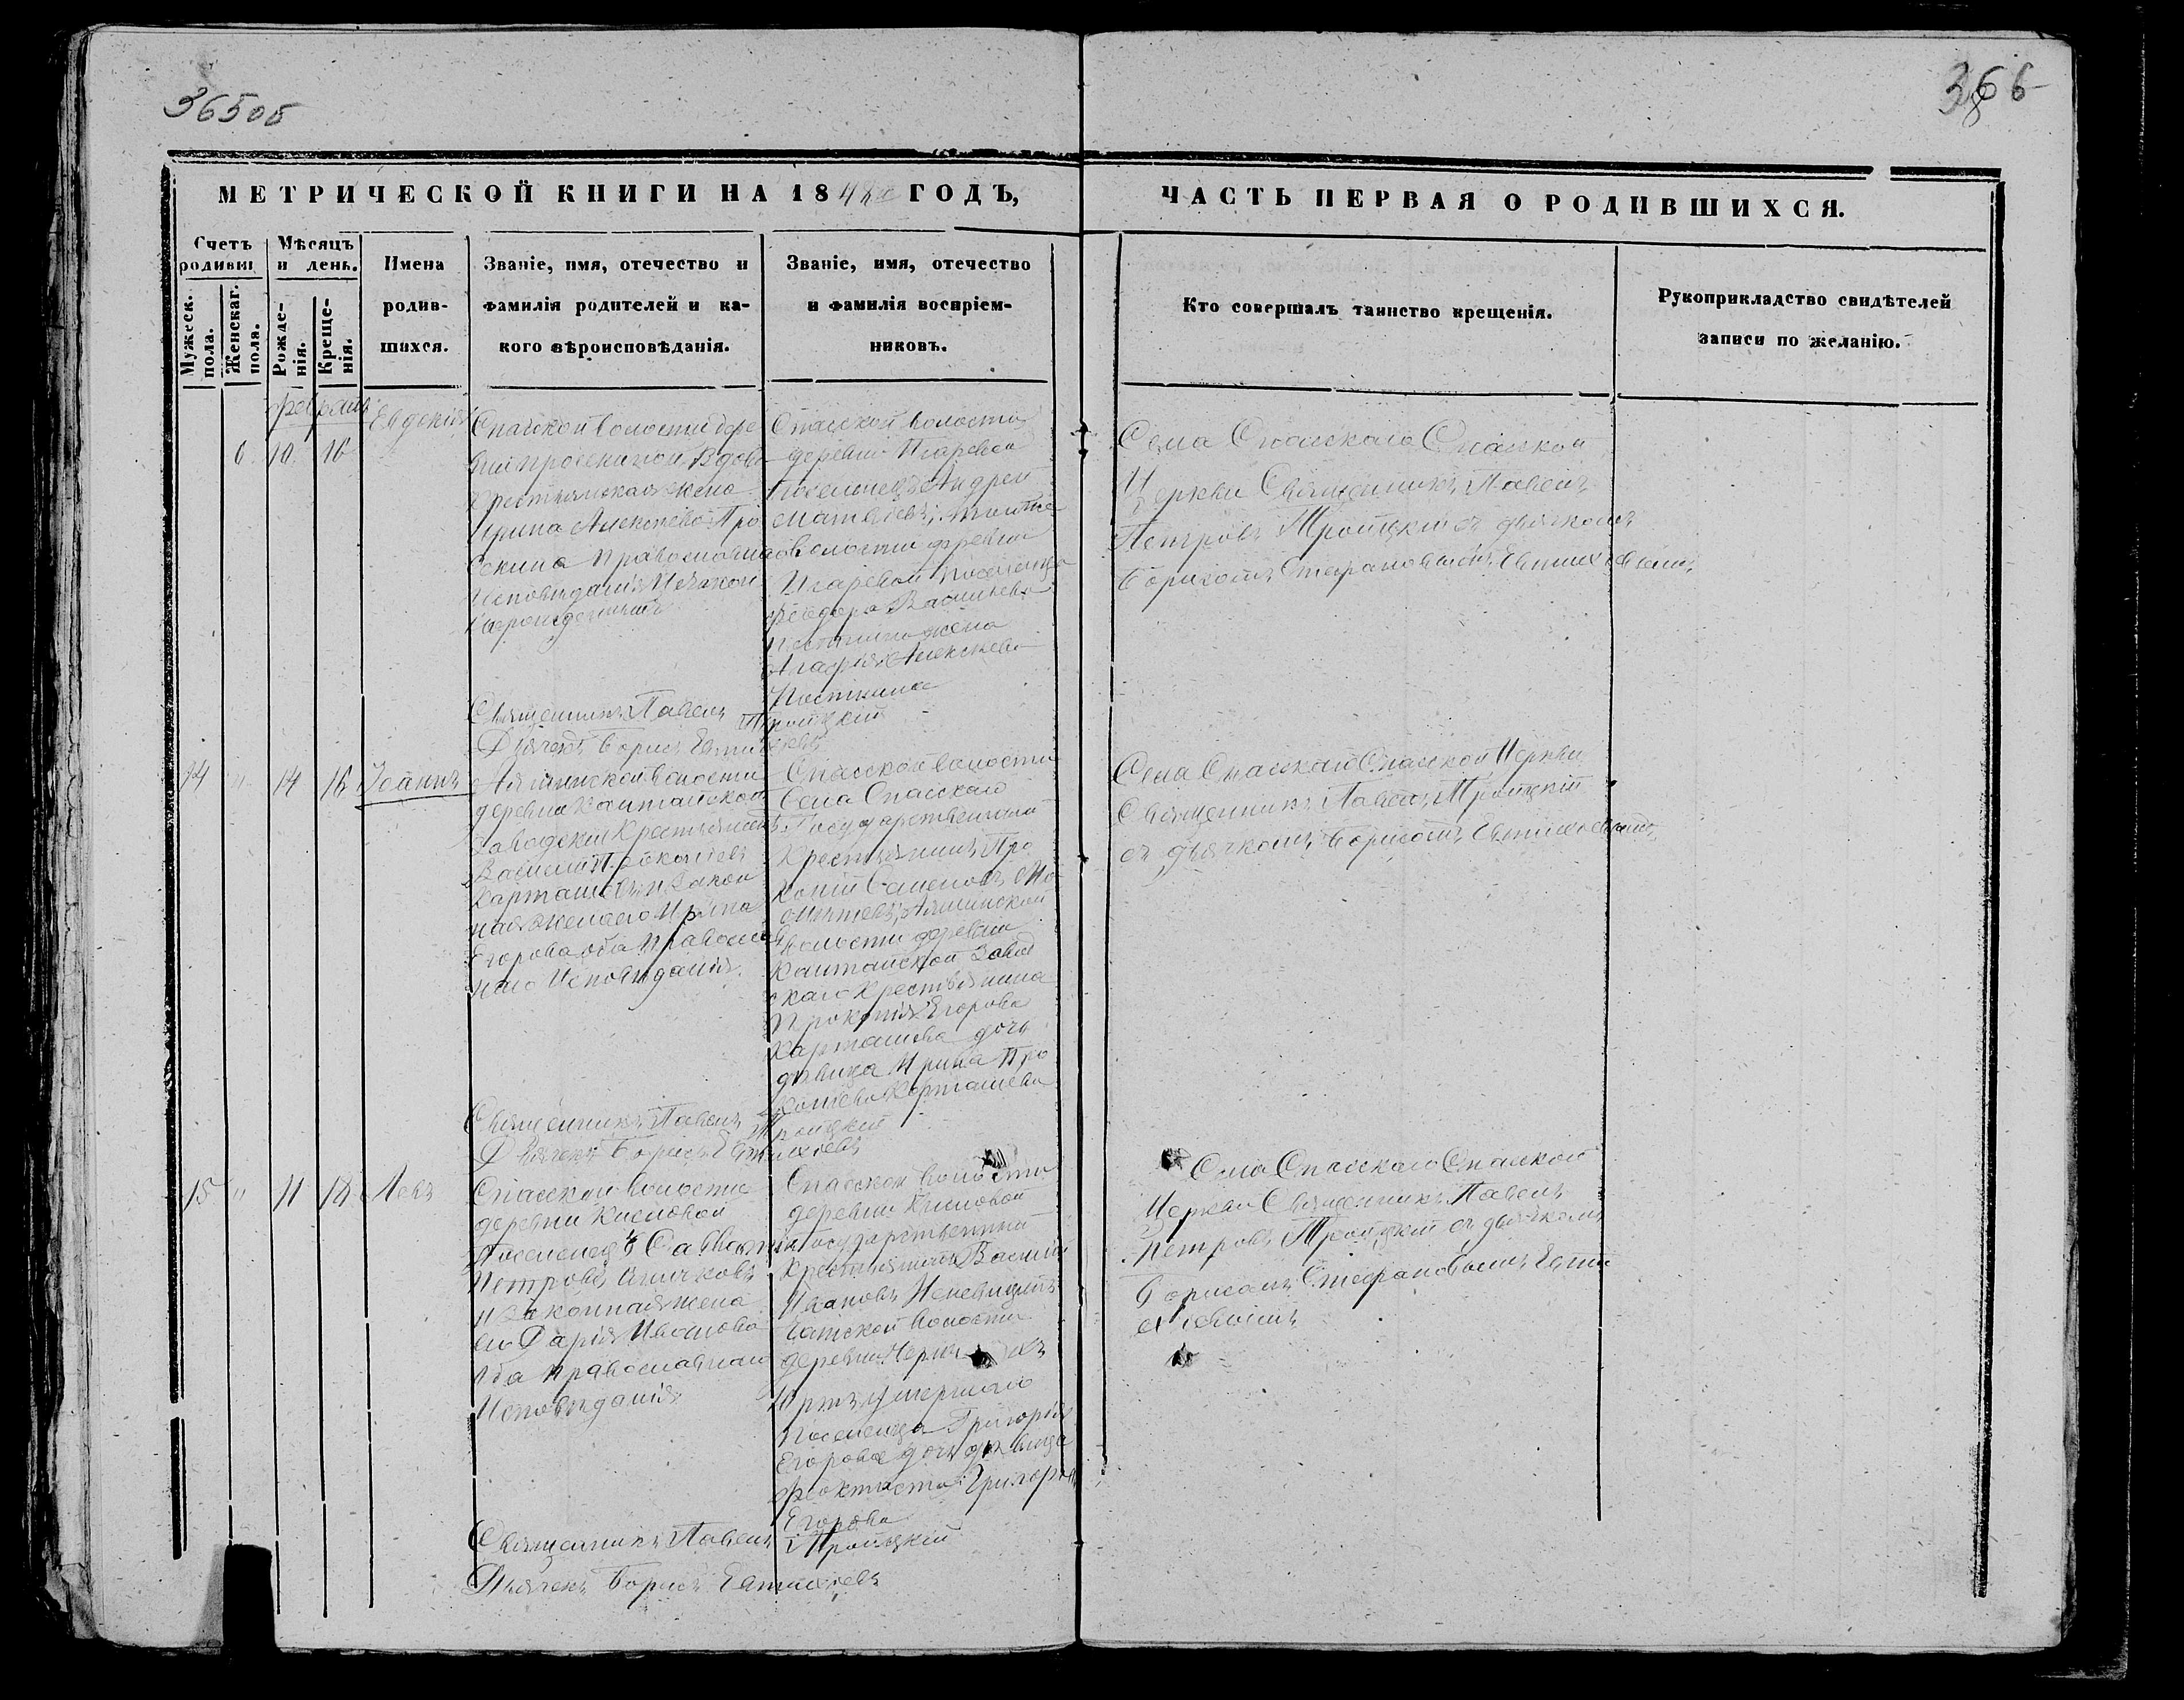 365об
366
МЕТРИЧЕСКОЙ КНИГИ НА 184 ГОДЪ,
ЧАСТЬ ПЕРВАЯ О РОДИВШИХСЯ.
Счетъ родивш
Мужеск. пола.
Женскаг. пола.
Мѣсяцъ и день.
Рожде-
нія.
Креще-
нія.
Имена
родив-
шихся.
Званіе, имя, отечество и
фамилія родителей и ка-
кого вѣроисповѣданія.
Званіе, имя, отечество
и фамилія воспріем-
никовъ.
Кто совершалъ таинство крещенія.
Рукоприкладство свидѣтелей
записи по желанію.
февраль
6 10 16
Евдокія
Спаской волости дере
вни Вдова
крестьянская жена
Ирина Алексѣева Про
скина Православнаго
Исповѣданія
Спасской волости
деревни
Поселенецъ Андрей
Матвѣевъ, тоиже
волости деревни
поселенца
Федора Васильева
жена
Алексѣева
Постнина
Села Спасскаго Спаской
Церкви Священникъ Павелъ
Петровъ Троицкій съ дьячкомъ
Борисомъ Стефановымъ Евтихіевымъ
Священникъ Павелъ Троицкій
Дьячекъ Борисъ Евтихіевъ
14 " 14 16 Іоаннъ
волости
деревни Каштанской
Заводскій Крестьянинъ
Василій Прокопіевъ
Карташевъ и Закон
ная жена его Ирина
Егорова оба Православ
наго Исповѣданія
Спасской волости
села Спасскаго
Государственный
Крестьянинъ Про
копій Семеновъ
волости деревни
Каштанской Завод
скаго Крестьянина
Прокопія Егорова
Карташева дочь
дѣвица Ирина Про
копіева Карташева
Села Спасскаго Спаской Церкви
Священникъ Павелъ Троицкій
съ дьячкомъ Борисомъ Евтихіевымъ
Священникъ Павелъ Троицкій
Дьячекъ Борисъ Евтихіевъ
15 " 11 18 Левъ
Спасской волости
деревни Кисловой
Поселенецъ Савватій
Петровъ
и Законная жена
его Дарія Иванова
оба Православнаго
Исповѣданія
Спасской волости
деревни Кисловой
Государственный
Крестьянинъ Василій
Ивановъ
волости
деревни
Юртъ умершаго
Поселенца Григорія
Егорова дочь дѣвица
Феоктиста Григорьева
Егорова
Села Спасскаго Спаской
Церкви Священникъ Павелъ
Петровъ Троицкій съ дьячкомъ
Борисомъ Стефановымъ Евти
хіевымъ
Священникъ Павелъ Троицкій
Дьячекъ Борисъ Евтихіевъ